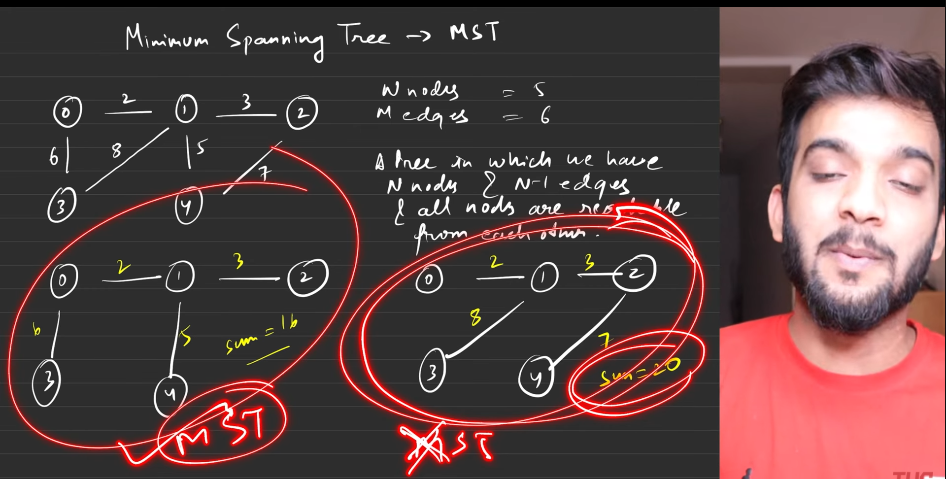 Minimum Spanning Tree → MST
0 2 1 3 2
N nodes = 5
M edges = 6
6 8 5 7
3 4
A tree in which we have
N nodes & N-1 edges
& all nodes are reachable
from each other.
0 2 1 3 2
6 5 sum = 16
3 4
MST
0 2 1 3 2
8 7
3 4 sum = 20
MST